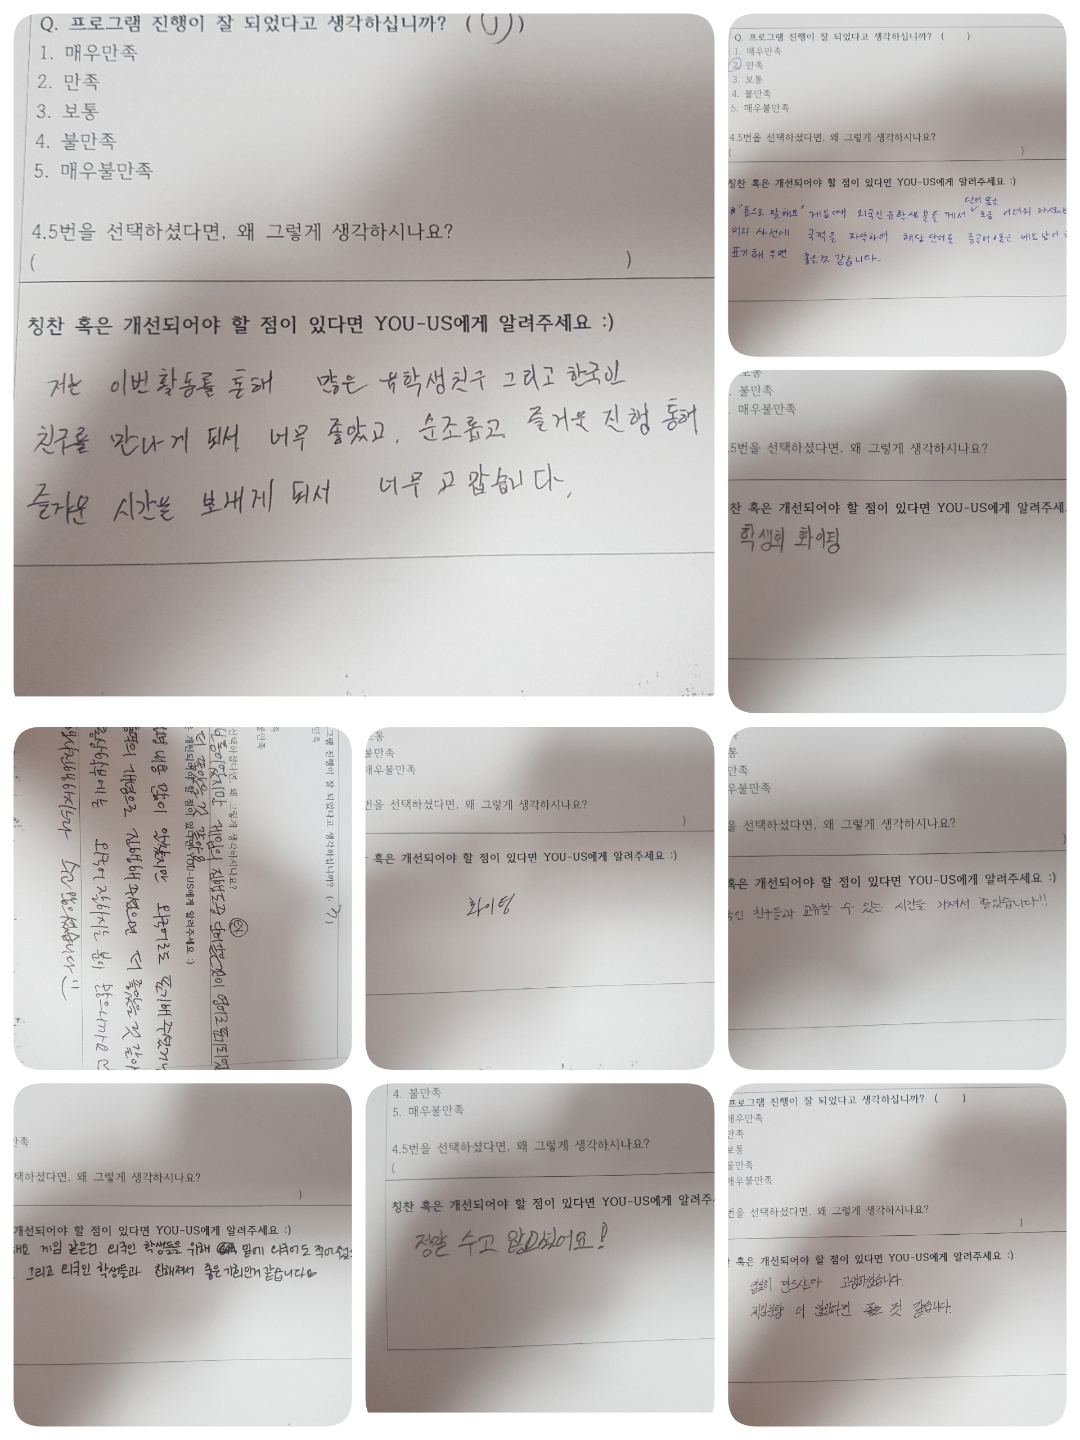 Q. 프로그램 진행이 잘 되었다고 생각하십니까? ( 1 )
1. 매우만족
2. 만족
3. 보통
4. 불만족
5. 매우불만족
4.5번을 선택하셨다면, 왜 그렇게 생각하시나요?
( )
칭찬 혹은 개선되어야 할 점이 있다면 YOU-US에게 알려주세요 :)
저는 이번 활동를 통해 많은 유학생친구 그리고 한국인
친구를 만나게 되서 너무 좋았고, 순조롭고 즐거웃 진행 통해
즐거운 시간을 보내게 되서 너무 고맙습니다.
Q. 프로그램 진행이 잘 되었다고 생각하십니까? ( )
1. 매우만족
2. 만족
3. 보통
4. 불만족
5. 매우불만족
4.5번을 선택하셨다면, 왜 그렇게 생각하시나요?
( )
칭찬 혹은 개선되어야 할 점이 있다면 YOU-US에게 알려주세요 :)
"몸으로 말해요" 게임때 외국인 유학생 분들 께서 조금 어려워 하셨
미리 사전에 국적을 파악하여 해당 단어를 중국어 혹은 베트남어
표기해 두면 좋을것 같습니다.
보통
불만족
매우불만족
5번을 선택하셨다면, 왜 그렇게 생각하시나요?
찬 혹은 개선되어야 할 점이 있다면 YOU-US에게 알려주세
학생회 화이팅
그램 진행이 잘 되었다고 생각하십니까?
만족
불만족
선택하셨다면, 왜 그렇게 생각하시나요?
은 개선되어야 할 점이 있다면 YOU-US에게 알려주세요 :)
더 좋았을 것 같아요
설명 내용 많이 있지만 외국어로도 표기해 주셨거나
진행해 주셨으면 더 좋았을 것 같아
수고 많으셨습니다 :)
보통
불만족
매우불만족
번을 선택하셨다면, 왜 그렇게 생각하시나요?
)
혹은 개선되어야 할 점이 있다면 YOU-US에게 알려주세요 :)
화이팅
통
만족
우불만족
을 선택하셨다면, 왜 그렇게 생각하시나요?
)
혹은 개선되어야 할 점이 있다면 YOU-US에게 알려주세요 :)
국인 친구들과 교류할 수 있는 시간을 가져서 좋았습니다!!
만족
택하셨다면, 왜 그렇게 생각하시나요?
)
개선되어야 할 점이 있다면 YOU-US에게 알려주세요 :)
해요 게임 같은건 외국인 학생들을 위해 밑에 외국어도 적어
그리고 외국인 학생들과 친해져서 좋은 기회인거 같습니다
4. 불만족
5. 매우불만족
4.5번을 선택하셨다면, 왜 그렇게 생각하시나요?
(
칭찬 혹은 개선되어야 할 점이 있다면 YOU-US에게 알려주
정말 수고 많으셨어요!
프로그램 진행이 잘 되었다고 생각하십니까? ( )
매우만족
만족
보통
불만족
매우불만족
번을 선택하셨다면, 왜 그렇게 생각하시나요?
)
혹은 개선되어야 할 점이 있다면 YOU-US에게 알려주세요 :)
열심히 만드시느라 고생하셨습니다.
더 많았다면 좋을 것 같습니다.